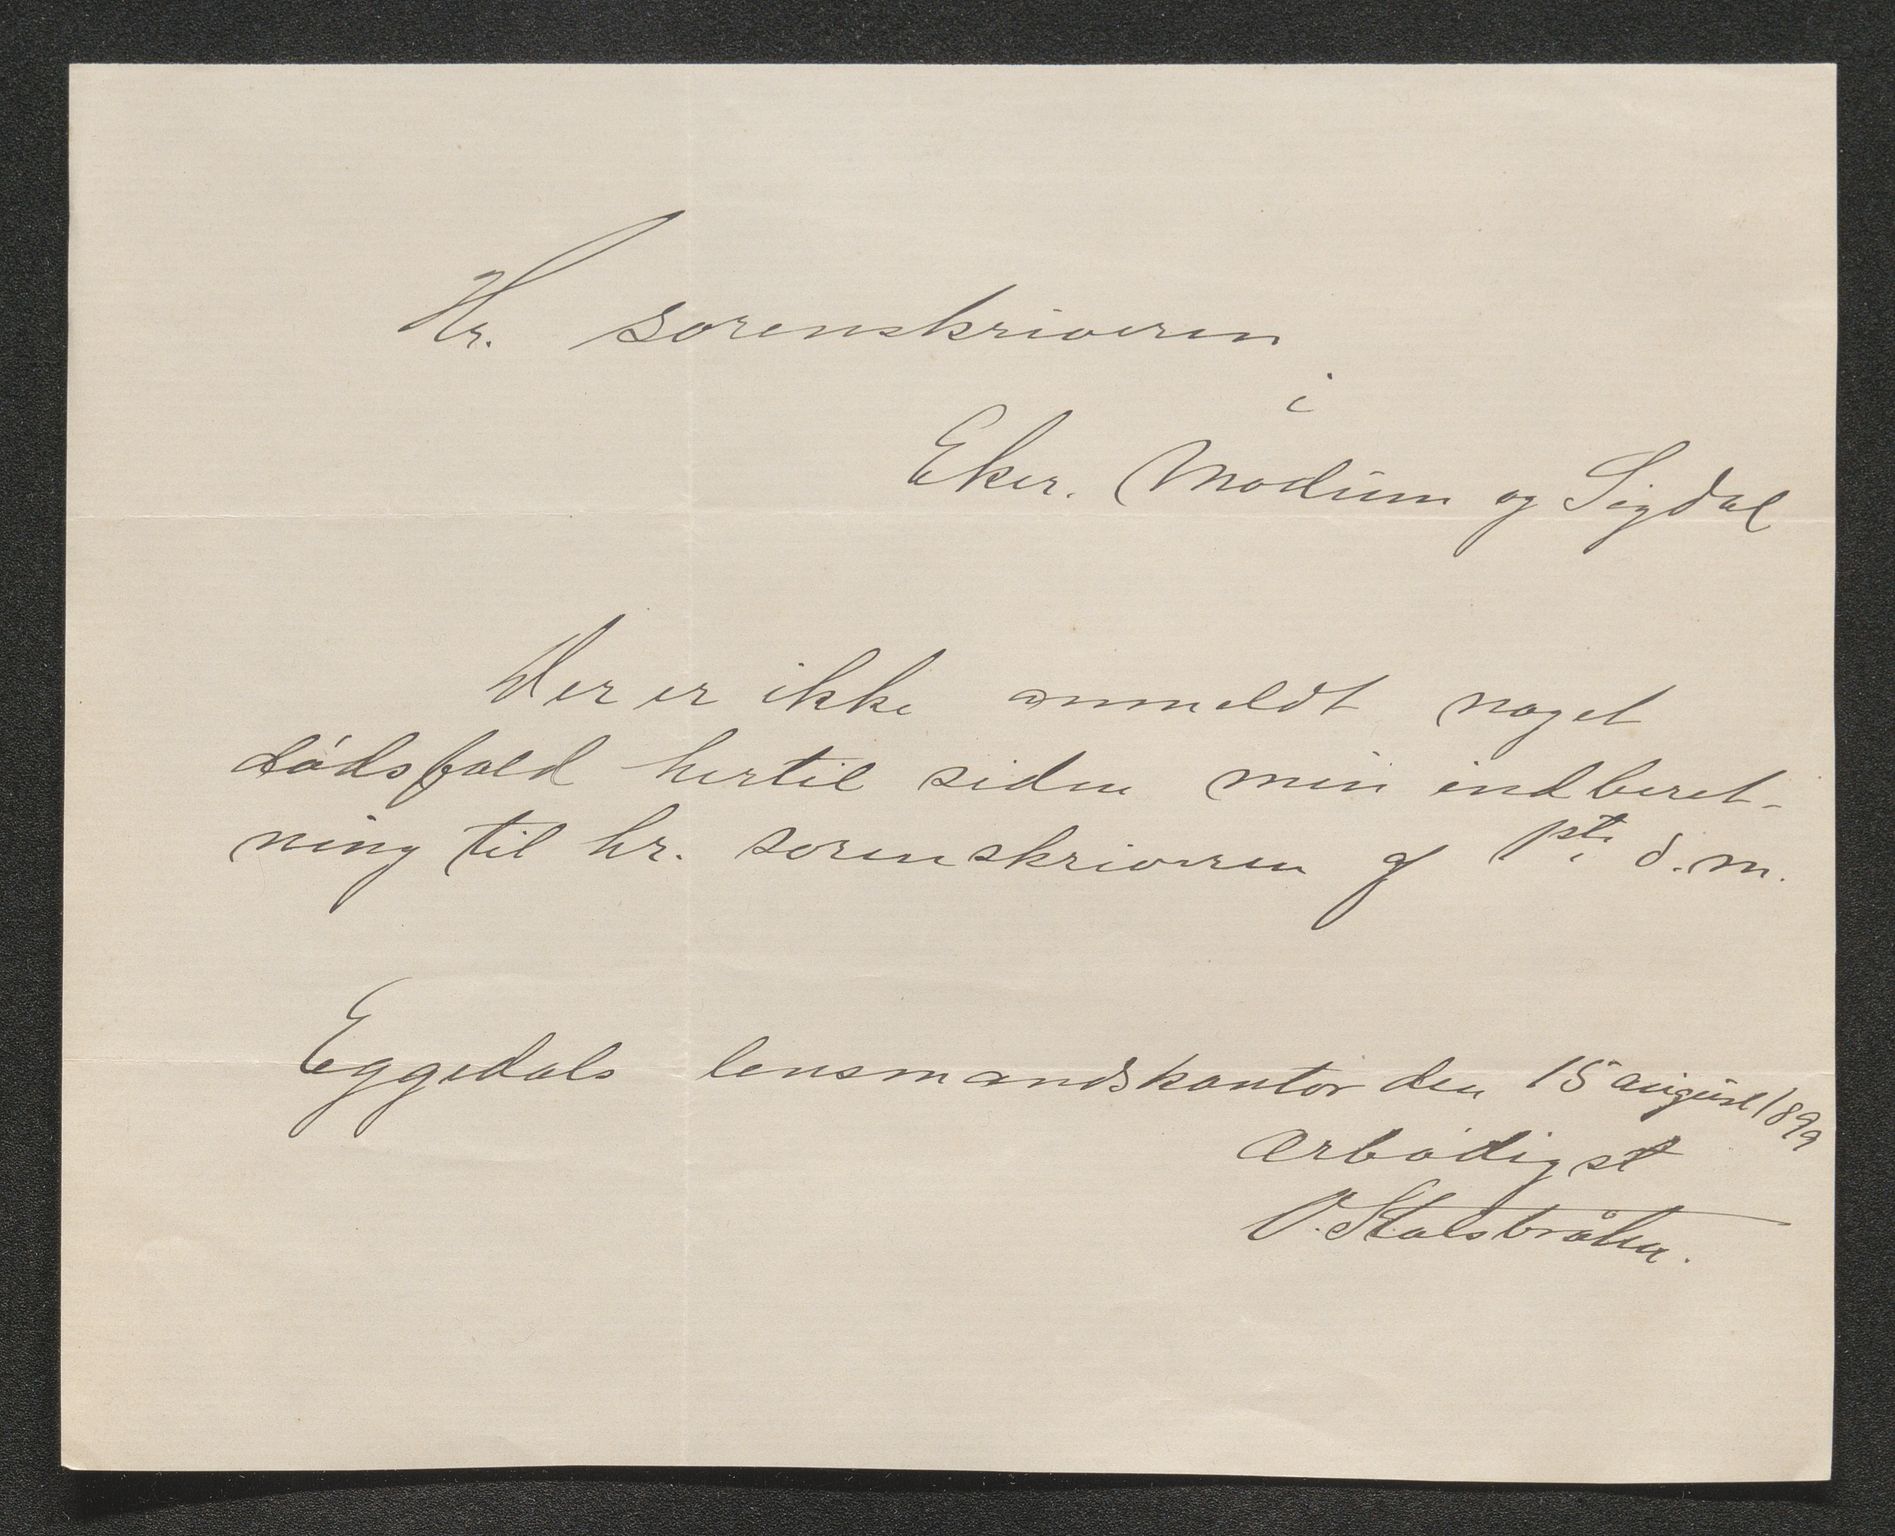 Hr. sorenskriveren
i
Eker, Modum og Sigdal
Der er ikke anmeldt noget
dódsfald hertil siden min indberet-
ning til hr. sorenskriveren af 1ste d.m.
Eggedals lensmandskontor den 15 august 1899
ærbódigst
O. Stalsbråten.